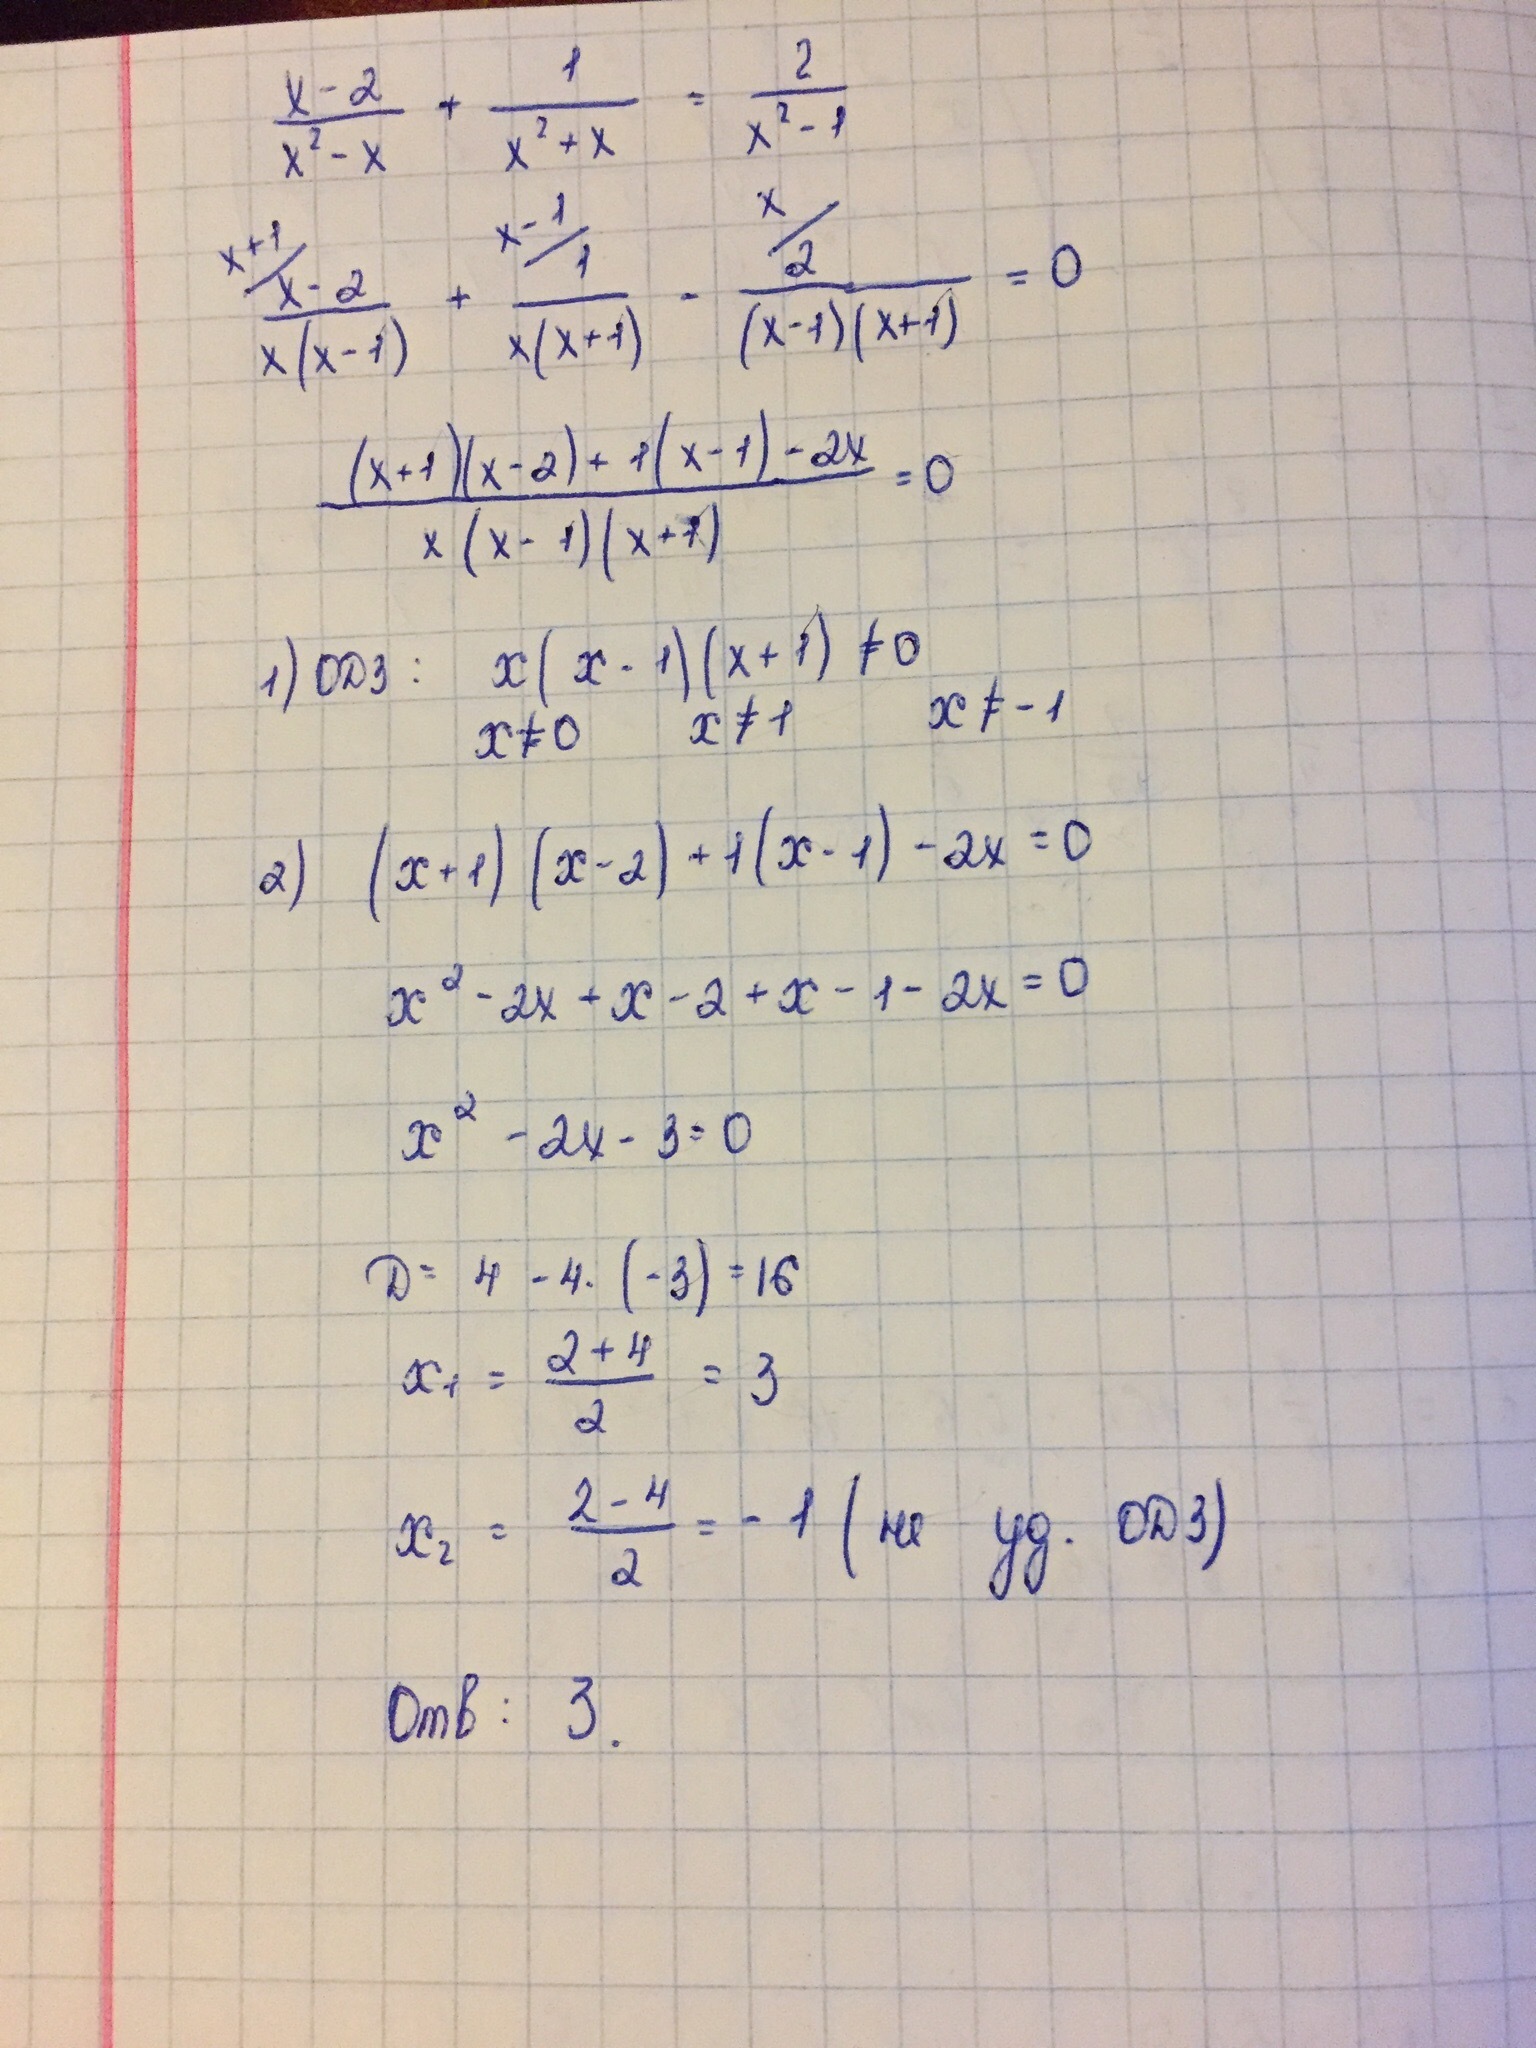 x-2/x²-x + 1/x²+x = 2/x²-1
x+1/ x-2/x(x-1) + x-1/ 1/x(x+1) - x/ 2/(x-1)(x+1) = 0
(x+1)(x-2)+1(x-1)-2x/x(x-1)(x+1) = 0
1) ОДЗ: x(x-1)(x+1) ≠ 0
x≠0 x≠1 x≠-1
2) (x+1)(x-2)+1(x-1)-2x=0
x²-2x+x-2+x-1-2x=0
x²-2x-3=0
D= 4-4·(-3)=16
x₁ = 2+4/2 = 3
x₂ = 2-4/2 = -1 (не уд. ОДЗ)
Отв: 3.